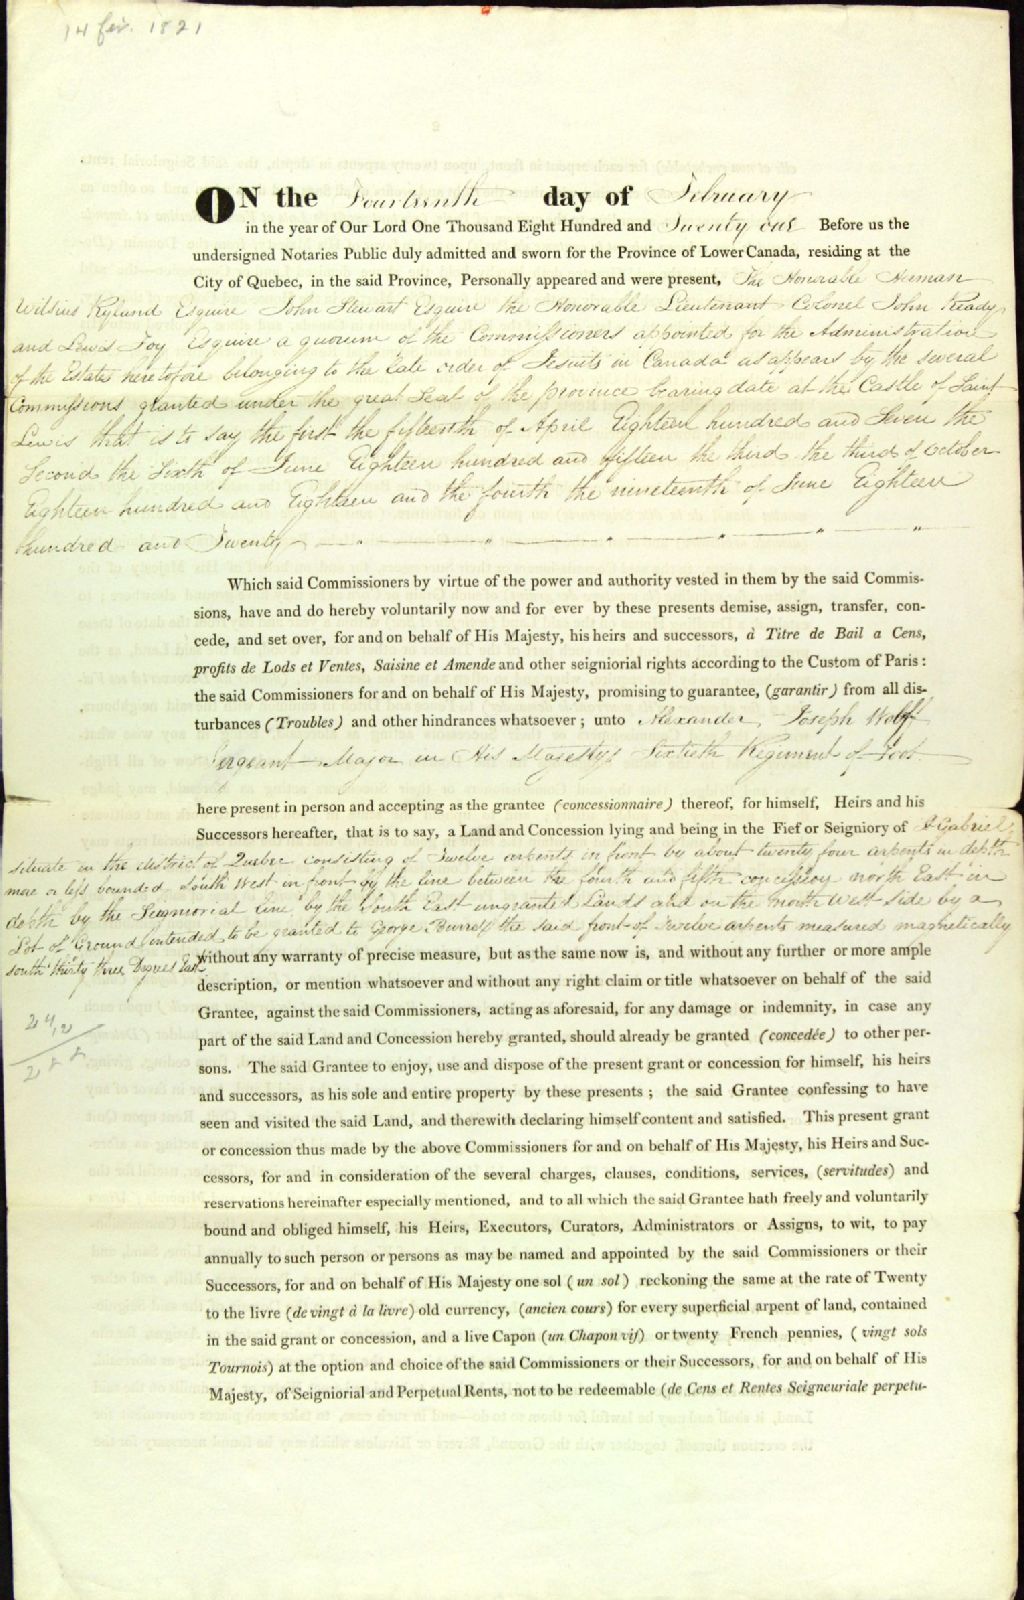 14 fev. 1821
ON the Fourteenth day of February
in the year of Our Lord One Thousand Eight Hundred and Twenty one Before us the
undersigned Notaries Public duly admitted and sworn for the Province of Lower Canada, residing at the
City of Quebec, in the said Province, Personally appeared and were present, The Honorable Herman
Witsius Ryland Esquire John Stewart Esquire the Honorable Lieutenant Colonel John Ready
and Lewis Foy Esquire a quorum of the Commissioners appointed for the Administration
of the Estates heretofore belonging to the late order of Jesuits in Canada as appears by the several
Commissions granted under the great Seal of the province bearing date at the Castle of Saint
Lewis that is to say the first the fifteenth of April Eighteen hundred and Seven the
Second the Sixth of June Eighteen hundred and fifteen the third the third of October
Eighteen hundred and Eighteen and the fourth the nineteenth of June Eighteen
hundred and Twenty
Which said Commissioners by virtue of the power and authority vested in them by the said Commis-
sions, have and do hereby voluntarily now and for ever by these presents demise, assign, transfer, con-
cede, and set over, for and on behalf of His Majesty, his heirs and successors, à Titre de Bail a Cens,
profits de Lods et Ventes, Saisine et Amende and other seigniorial rights according to the Custom of Paris:
the said Commissioners for and on behalf of His Majesty, promising to guarantee, (garantir) from all dis-
turbances (Troubles) and other hindrances whatsoever; unto Alexander Joseph Wolff
Sergeant Major in His Majestys Sixtieth Regiment of Foot
here present in person and accepting as the grantee (concessionnaire) thereof, for himself, Heirs and his
Successors hereafter, that is to say, a Land and Concession lying and being in the Fief or Seigniory of St Gabriel
situate in the district of Quebec consisting of Twelve arpents in front by about twenty four arpents in depth
more or less bounded South West in front by the line between the fourth and fifth concession north East in
depth by the Seigniorial line by the South East ungranted Lands and on the North West side by a
Lot of Ground intended to be granted to George Burrass the said front of Twelve arpents measured magnetically
south thirty three Degrees East
without any warranty of precise measure, but as the same now is, and without any further or more ample
description, or mention whatsoever and without any right claim or title whatsoever on behalf of the said
Grantee, against the said Commissioners, acting as aforesaid, for any damage or indemnity, in case any
part of the said Land and Concession hereby granted, should already be granted (concedée) to other per-
sons. The said Grantee to enjoy, use and dispose of the present grant or concession for himself, his heirs
and successors, as his sole and entire property by these presents; the said Grantee confessing to have
seen and visited the said Land, and therewith declaring himself content and satisfied. This present grant
or concession thus made by the above Commissioners for and on behalf of His Majesty, his Heirs and Suc-
cessors, for and in consideration of the several charges, clauses, conditions, services, (servitudes) and
reservations hereinafter especially mentioned, and to all which the said Grantee hath freely and voluntarily
bound and obliged himself, his Heirs, Executors, Curators, Administrators or Assigns, to wit, to pay
annually to such person or persons as may be named and appointed by the said Commissioners or their
Successors, for and on behalf of His Majesty one sol (un sol) reckoning the same at the rate of Twenty
to the livre (de vingt à la livre) old currency, (ancien cours) for every superficial arpent of land, contained
in the said grant or concession, and a live Capon (un Chapon vif) or twenty French pennies, (vingt sols
Tournois) at the option and choice of the said Commissioners or their Successors, for and on behalf of His
Majesty, of Seigniorial and Perpetual Rents, not to be redeemable (de Cens et Rentes Seigneuriale perpetu-